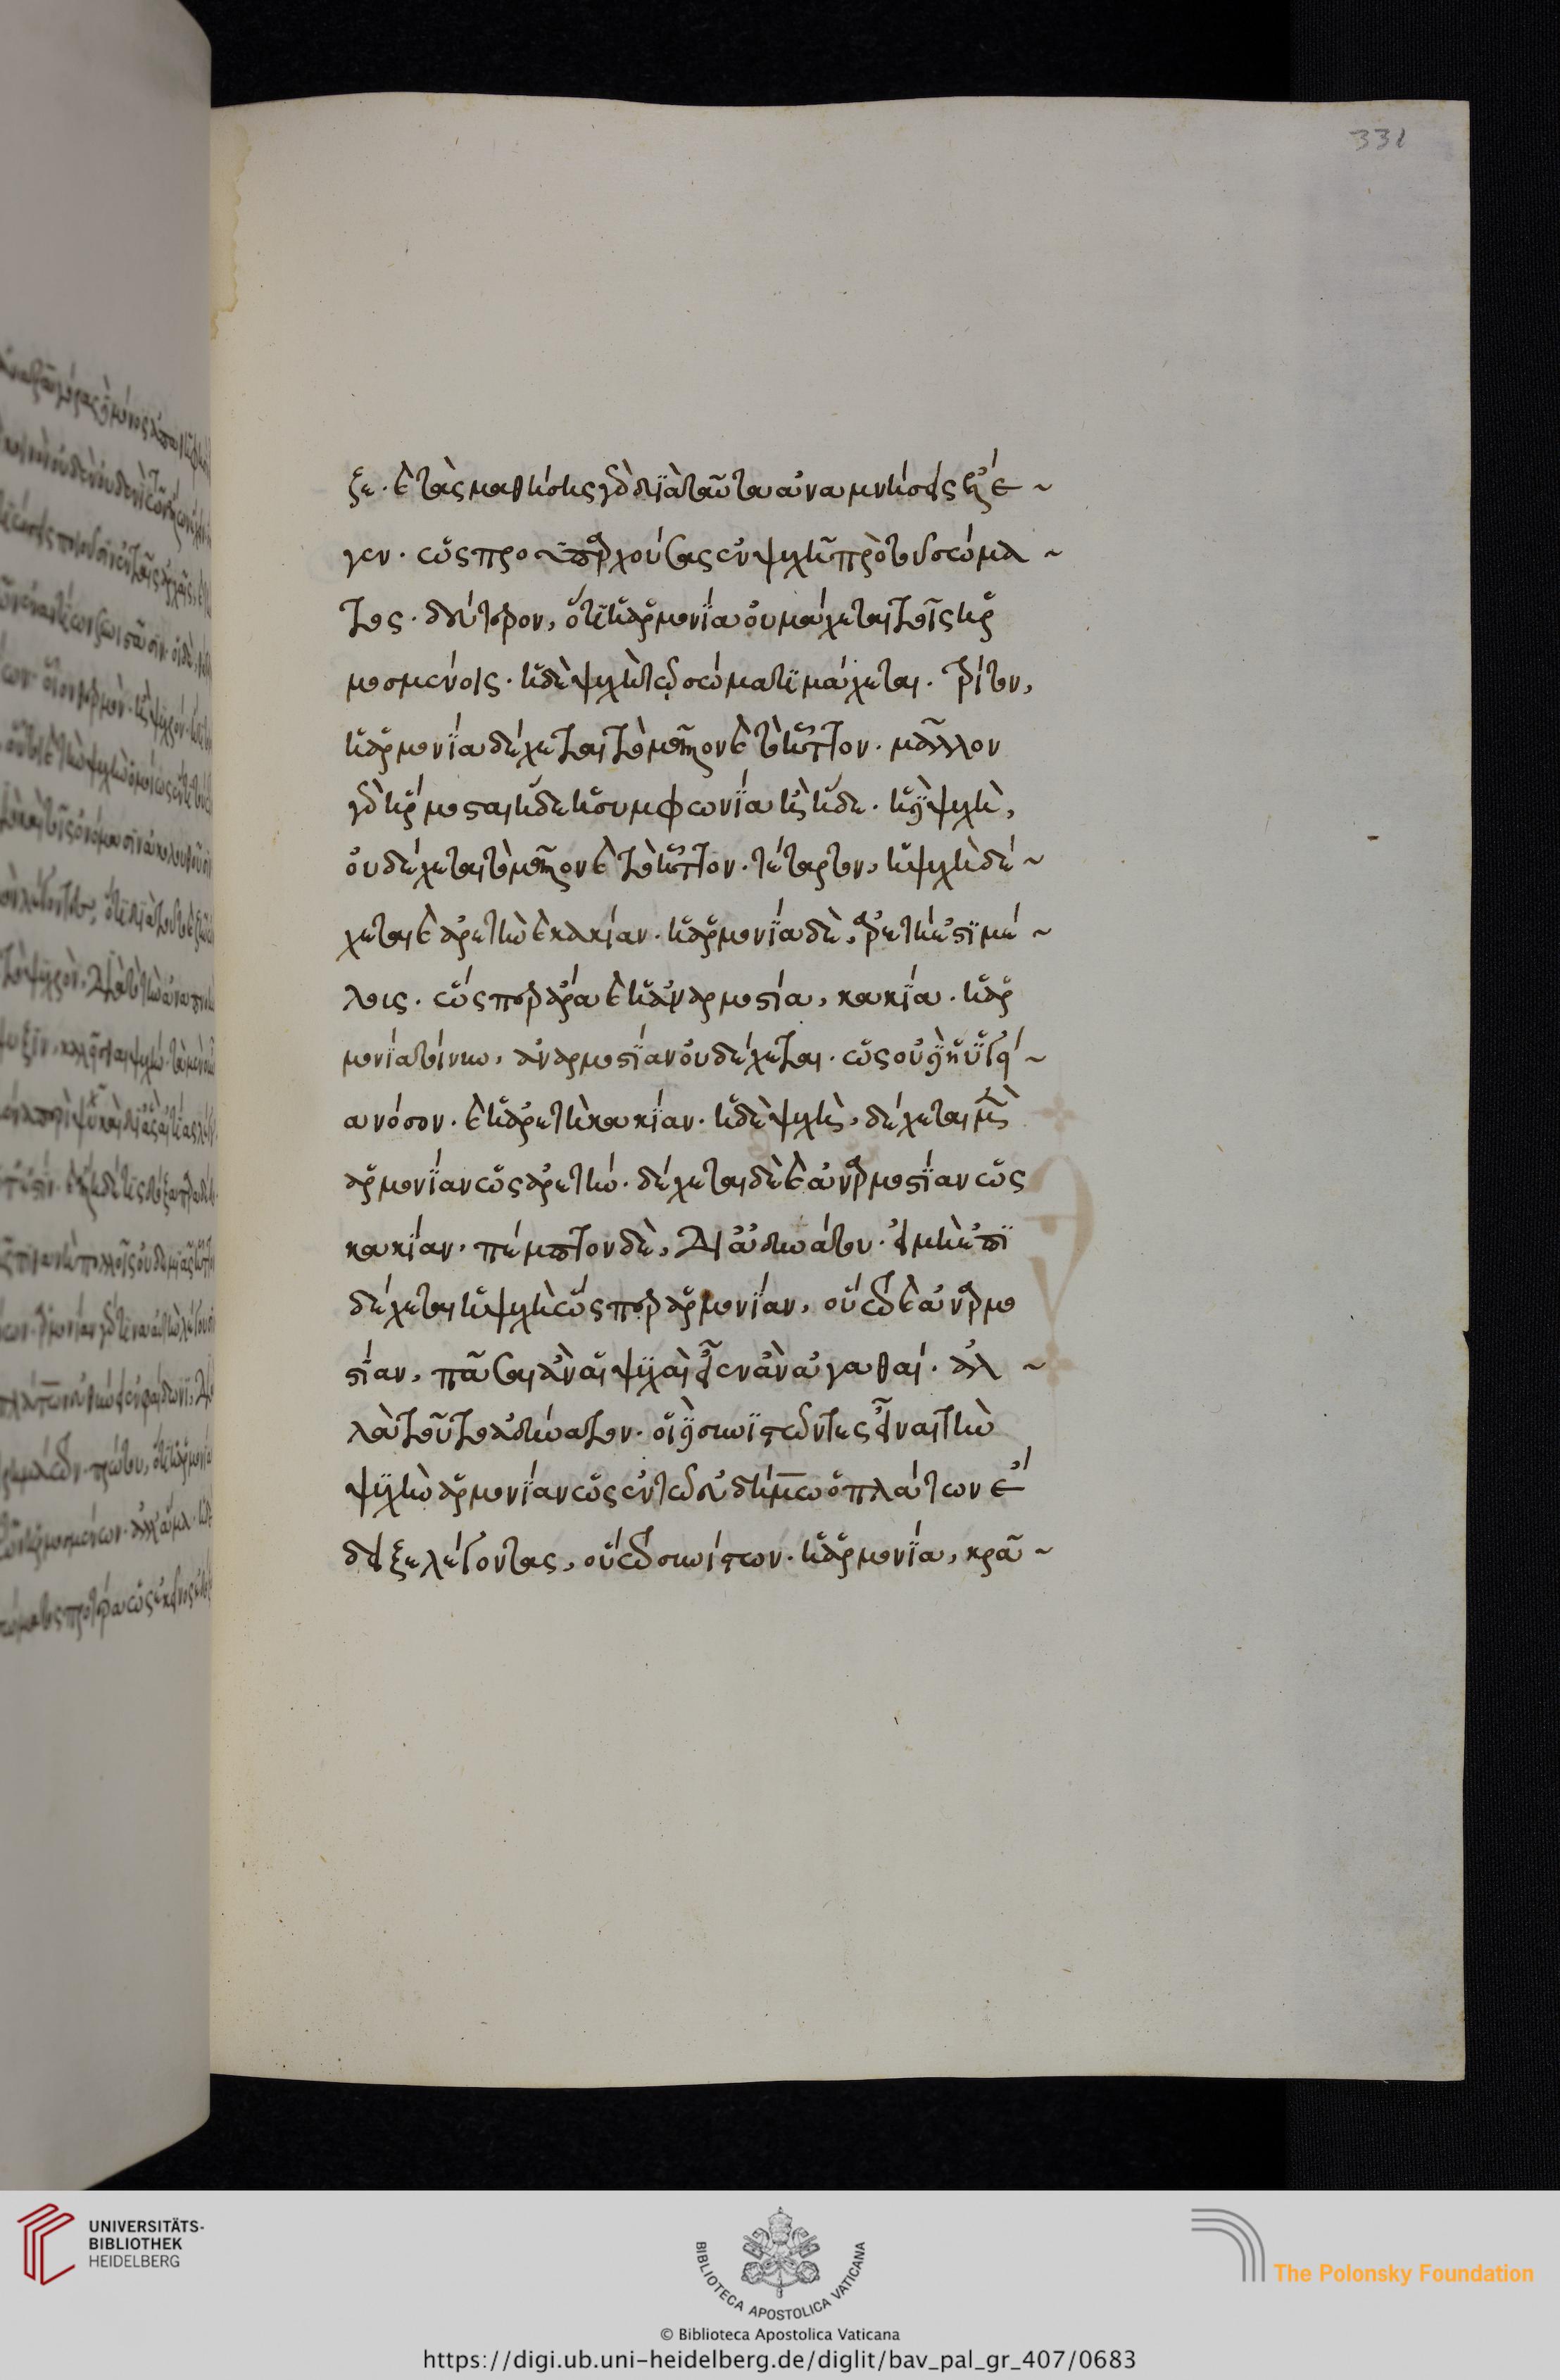 ξε. καὶ τὰς μαθήσεις γὰρ διὰ ταῦτα ἀναμνήσεις ἔλε ~
γεν. ὡς προϋπαρχούσας ἐν ψυχῇ πρὸ τοῦ σώμα ~
τος. δεύτερον, ὅτι ἡ ἁρμονία οὐ μάχεται τοῖς ἡρ
μοσμένοις. ἡ δὲ ψυχὴ τῷ σώματι μάχεται. τρίτον,
ἡ ἁρμονία δέχεται τὸ μεῖζον καὶ τὸ ἧττον. μᾶλλον
γὰρ ἥρμοσται ἥδε ἡ συμφωνία ἢ ἥδε. ἡ δὲ ψυχὴ,
οὐ δέχεται τὸ μεῖζον καὶ τὸ ἧττον. τέταρτον, ἡ ψυχὴ δέ ~
χεται καὶ ἀρετὴν καὶ κακίαν. ἡ ἁρμονία δὲ, ἀρετή ἐστι μέ ~
λεις. ὥσπερ ἄρα καὶ ἡ ἀναρμοστία, κακία. ἡ ἁρ
μονία τοίνυν, ἀναρμοστίαν οὐ δέχεται. ὡς οὐδὲ ἡ ὑγεί ~
α νόσον. καὶ ἡ ἀρετὴ κακίαν. ἡ δὲ ψυχὴ, δέχεται μὲν
ἁρμονίαν ὡς ἀρετήν. δέχεται δὲ καὶ ἀναρμοστίαν ὡς
κακίαν. πέμπτον δὲ, διὰ ἀδυνάτου. εἰ μὴ ἐπι
δέχεται ἡ ψυχὴ ὥσπερ ἁρμονίαν, οὕτω καὶ ἀναρμο
στίαν, πᾶσαι ἂν αἱ ψυχαὶ εἶεν ἂν ἀγαθαί. ἀλ ~
λὰ τοῦτο ἀδύνατον. οἱ δὲ συνιστῶντες εἶναι τὴν
ψυχὴν ἁρμονίαν ὡς ἐν τῷ εὐδήμῳ ὁ πλάτων ἔ
δειξε λέγοντας, οὕτω συνίστων. ἡ ἁρμονία, κρᾶ ~
331
UNIVERSITÄTS-
BIBLIOTHEK
HEIDELBERG
BIBLIOTECA APOSTOLICA VATICANA
The Polonsky Foundation
© Biblioteca Apostolica Vaticana
https://digi.ub.uni-heidelberg.de/diglit/bav_pal_gr_407/0683